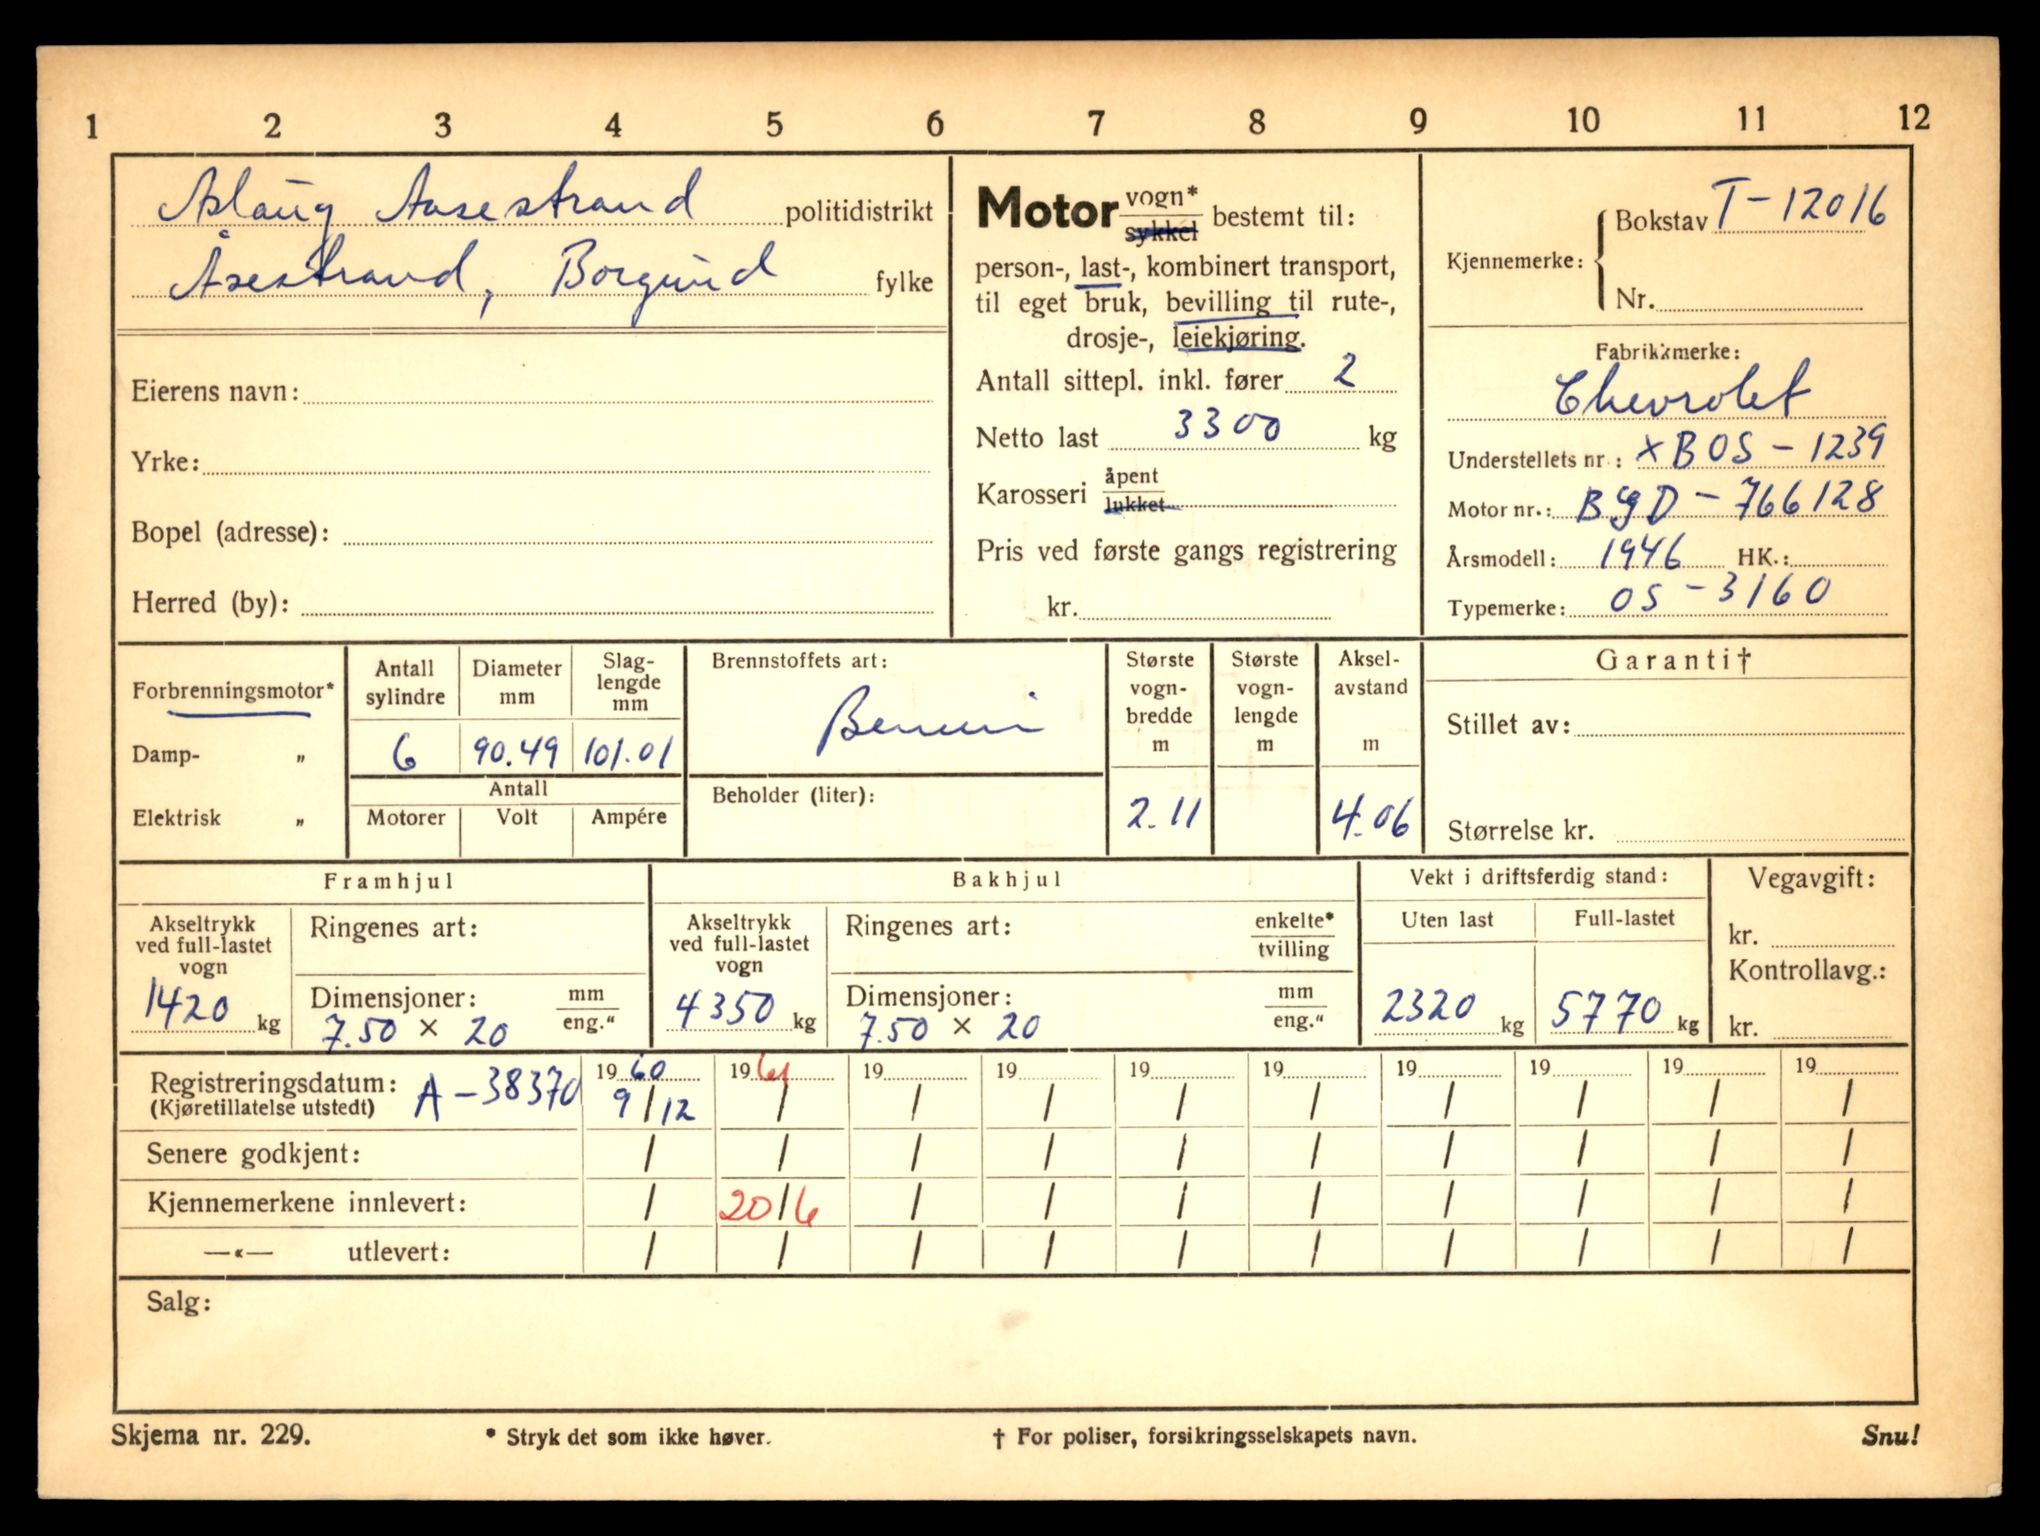 1 2 3 4 5 6 7 8 9 10 11 12
Aslaug Aasestrand politidistrikt
Åsestrand, Borgund fylke
Eierens navn:
Yrke:
Bopel (adresse):
Herred (by):
Motor vogn* sykkel bestemt til:
person-, last-, kombinert transport,
til eget bruk, bevilling til rute-,
drosje-, leiekjøring.
Antall sittepl. inkl. fører 2
Netto last 3300 kg
Karosseri åpent lukket
Pris ved første gangs registrering
kr.
Kjennemerke: { Bokstav T-12016
Nr.
Fabrikkmerke:
Chevrolet
Understellets nr.: XBOS-1239
Motor nr.: BgD-766128
Årsmodell: 1946 HK.:
Typemerke: OS-3160
Forbrenningsmotor*
Damp- „
Elektrisk „
Antall sylindre
Diameter mm
Slag-lengde mm
6 90.49 101.01
Antall
Motorer Volt Ampére
Brennstoffets art:
Bensin
Beholder (liter):
Største vogn-bredde m
2.11
Største vogn-lengde m
Aksel-avstand m
4.06
Garanti†
Stillet av:
Størrelse kr.
Framhjul
Akseltrykk
ved full-lastet
vogn
1420 kg
Ringenes art:
Dimensjoner: mm eng."
7.50 × 20
Bakhjul
Akseltrykk
ved full-lastet
vogn
4350 kg
Ringenes art: enkelte* tvilling
Dimensjoner: mm eng."
7.50 × 20
Vekt i driftsferdig stand:
Uten last Full-lastet
2320 kg 5770 kg
Vegavgift:
kr.
Kontrollavg.:
kr.
Registreringsdatum: A-38370 1960 1961 19 19 19 19 19 19 19 19
(Kjøretillatelse utstedt) 9/12 / / / / / / / / /
Senere godkjent: / / / / / / / / / /
Kjennemerkene innlevert: / 20/6 / / / / / / / /
—«— utlevert: / / / / / / / / / /
Salg:
Skjema nr. 229. * Stryk det som ikke høver. † For poliser, forsikringsselskapets navn. Snu!